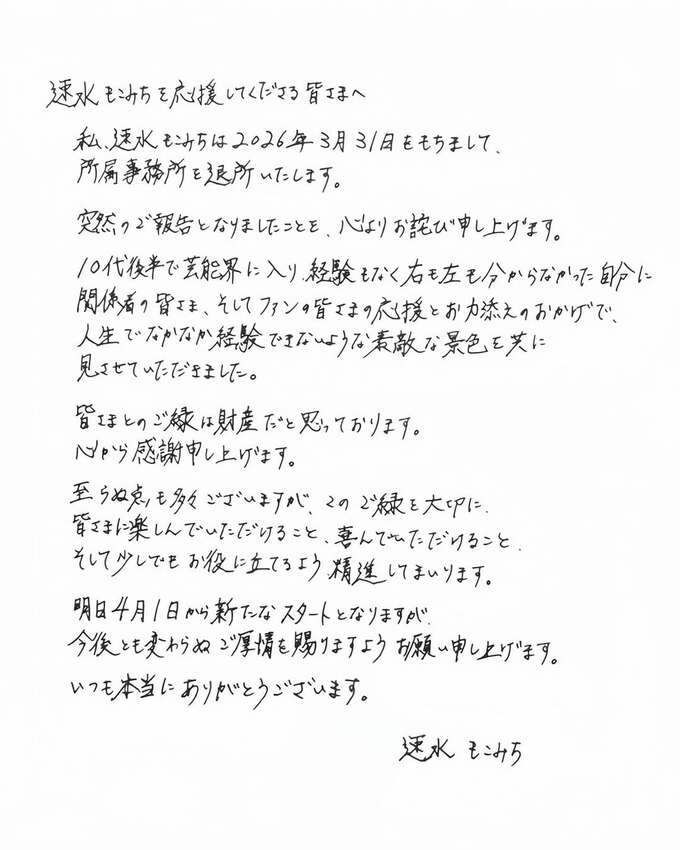 速水もこみちを応援してくださる皆さまへ
私、速水もこみちは2026年3月31日をもちまして、
所属事務所を退所いたします。
突然のご報告となりましたことを、心よりお詫び申し上げます。
10代後半で芸能界に入り、経験もなく右も左も分からなかった自分に
関係者の皆さま、そしてファンの皆さまの応援とお力添えのおかげで、
人生でなかなか経験できないような素敵な景色を共に
見させていただきました。
皆さまとのご縁は財産だと思っております。
心から感謝申し上げます。
至らぬ点も多々ございますが、このご縁を大切に、
皆さまに楽しんでいただけること、喜んでいただけること、
そして少しでもお役に立てるよう精進してまいります。
明日4月1日から新たなスタートとなりますが、
今後とも変わらぬご厚情を賜りますようお願い申し上げます。
いつも本当にありがとうございます。
速水もこみち